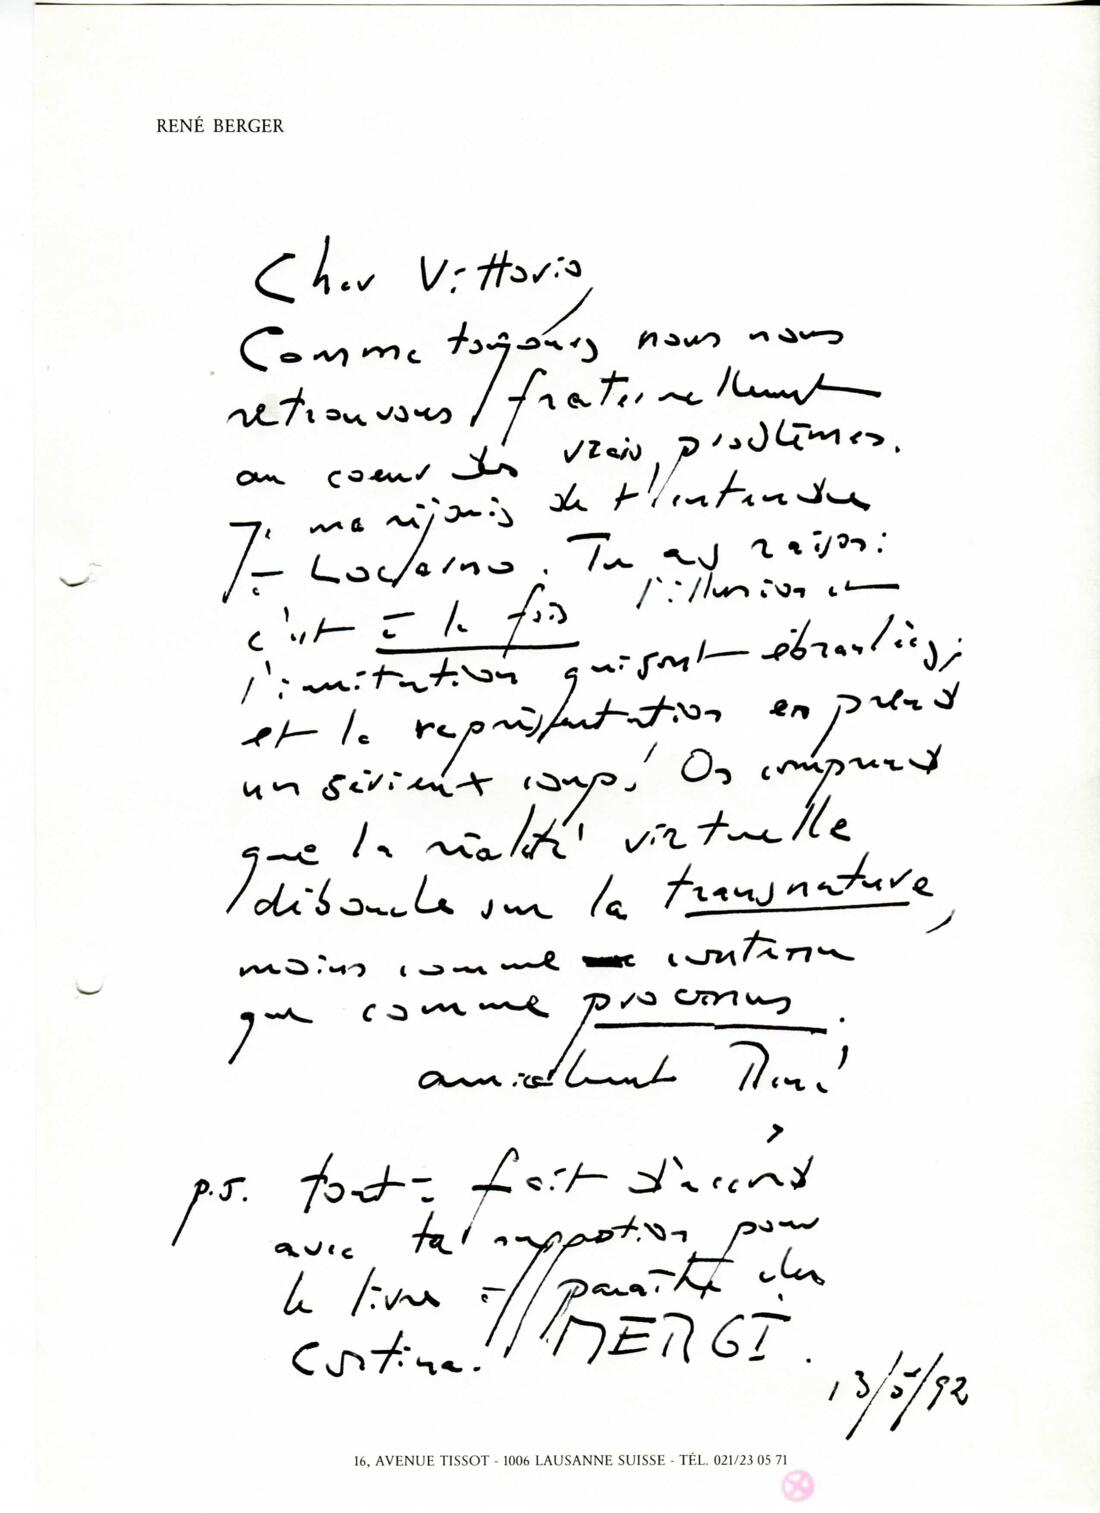 RENÉ BERGER
Cher Vittorio,
Comme toujours nous nous
retrouvons fraternellement
au coeur des vrais problèmes.
Je me réjouis de t'entendre
à Locarno. Tu as raison:
c'est à la fois l'illusion et
l'imitation qui sont ébranlées;
et la représentation en prend
un sérieux coup! On comprend
que la réalité virtuelle
débouche sur la transnature,
moins comme contenu
que comme processus.
amicalement René
p.s. tout à fait d'accord
avec ta pour
le livre à paraître chez
Cortina. MERCI.
13/5/92
16, AVENUE TISSOT - 1006 LAUSANNE SUISSE - TÉL. 021/23 05 71